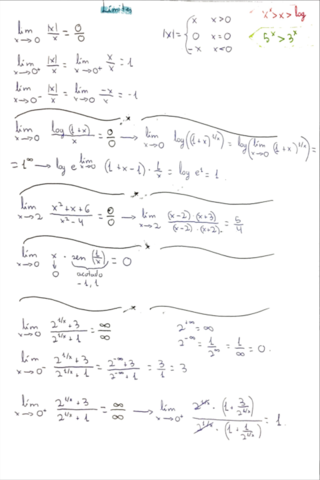 Límites
x^x > x > log
5^x > 3^x
lim x→0 |x|/x = 0/0
|x| = { x x>0
0 x=0
-x x<0
lim x→0⁺ |x|/x = lim x→0⁺ x/x = 1
lim x→0⁻ |x|/x = lim x→0⁻ -x/x = -1
lim x→0 log(1+x)/x = 0/0 → lim x→0 log(1+x)^(1/x) = log(lim x→0 (1+x)^(1/x)) =
= 1^∞ → log e^(lim x→0 (1+x-1)·1/x) = log e¹ = 1
lim x→2 (x²+x+6)/(x²-4) = 0/0 → lim x→2 (x-2)·(x+3)/(x-2)·(x+2) = 5/4
lim x→0 x · sen(1/x) = 0
↓ 0 acotado
-1, 1
lim x→0 (2^(1/x)+3)/(2^(1/x)+1) = ∞/∞
2^(+∞) = ∞
2^(-∞) = 1/2^∞ = 1/∞ = 0
lim x→0⁻ (2^(1/x)+3)/(2^(1/x)+1) = (2^(-∞)+3)/(2^(-∞)+1) = 3/1 = 3
lim x→0⁺ (2^(1/x)+3)/(2^(1/x)+1) = ∞/∞ → lim x→0⁺ 2^(1/x)·(1+3/2^(1/x))/2^(1/x)·(1+1/2^(1/x)) = 1